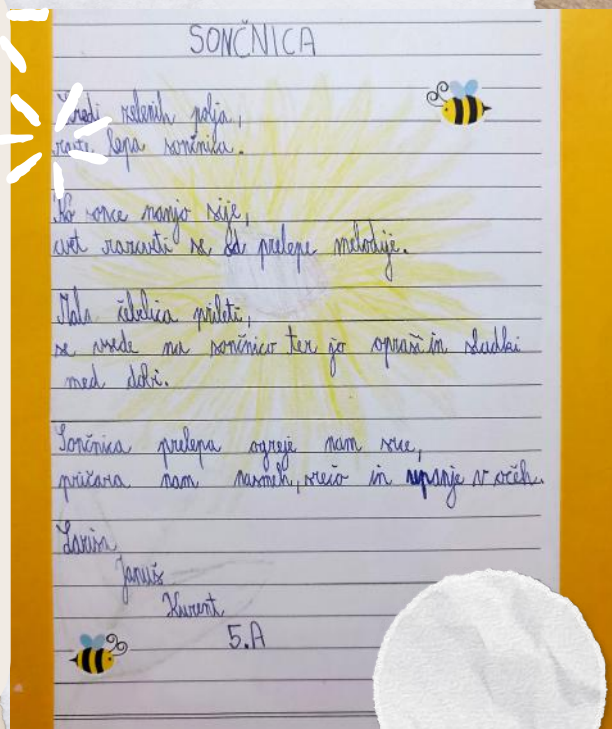 SONČNICA
Sredi zelenih polja,
raste lepa sončnica.
Ko sonce nanjo sije,
cvet razcveti se da prelepe melodije.
Mala čebelica prileti,
se vsede na sončnico ter jo opraši in sladki
med dobi.
Sončnica prelepa ogreje nam srce,
pričara nam nasmeh, srečo in upanje v očeh.
Larisa
Januš
Kurent
5.A